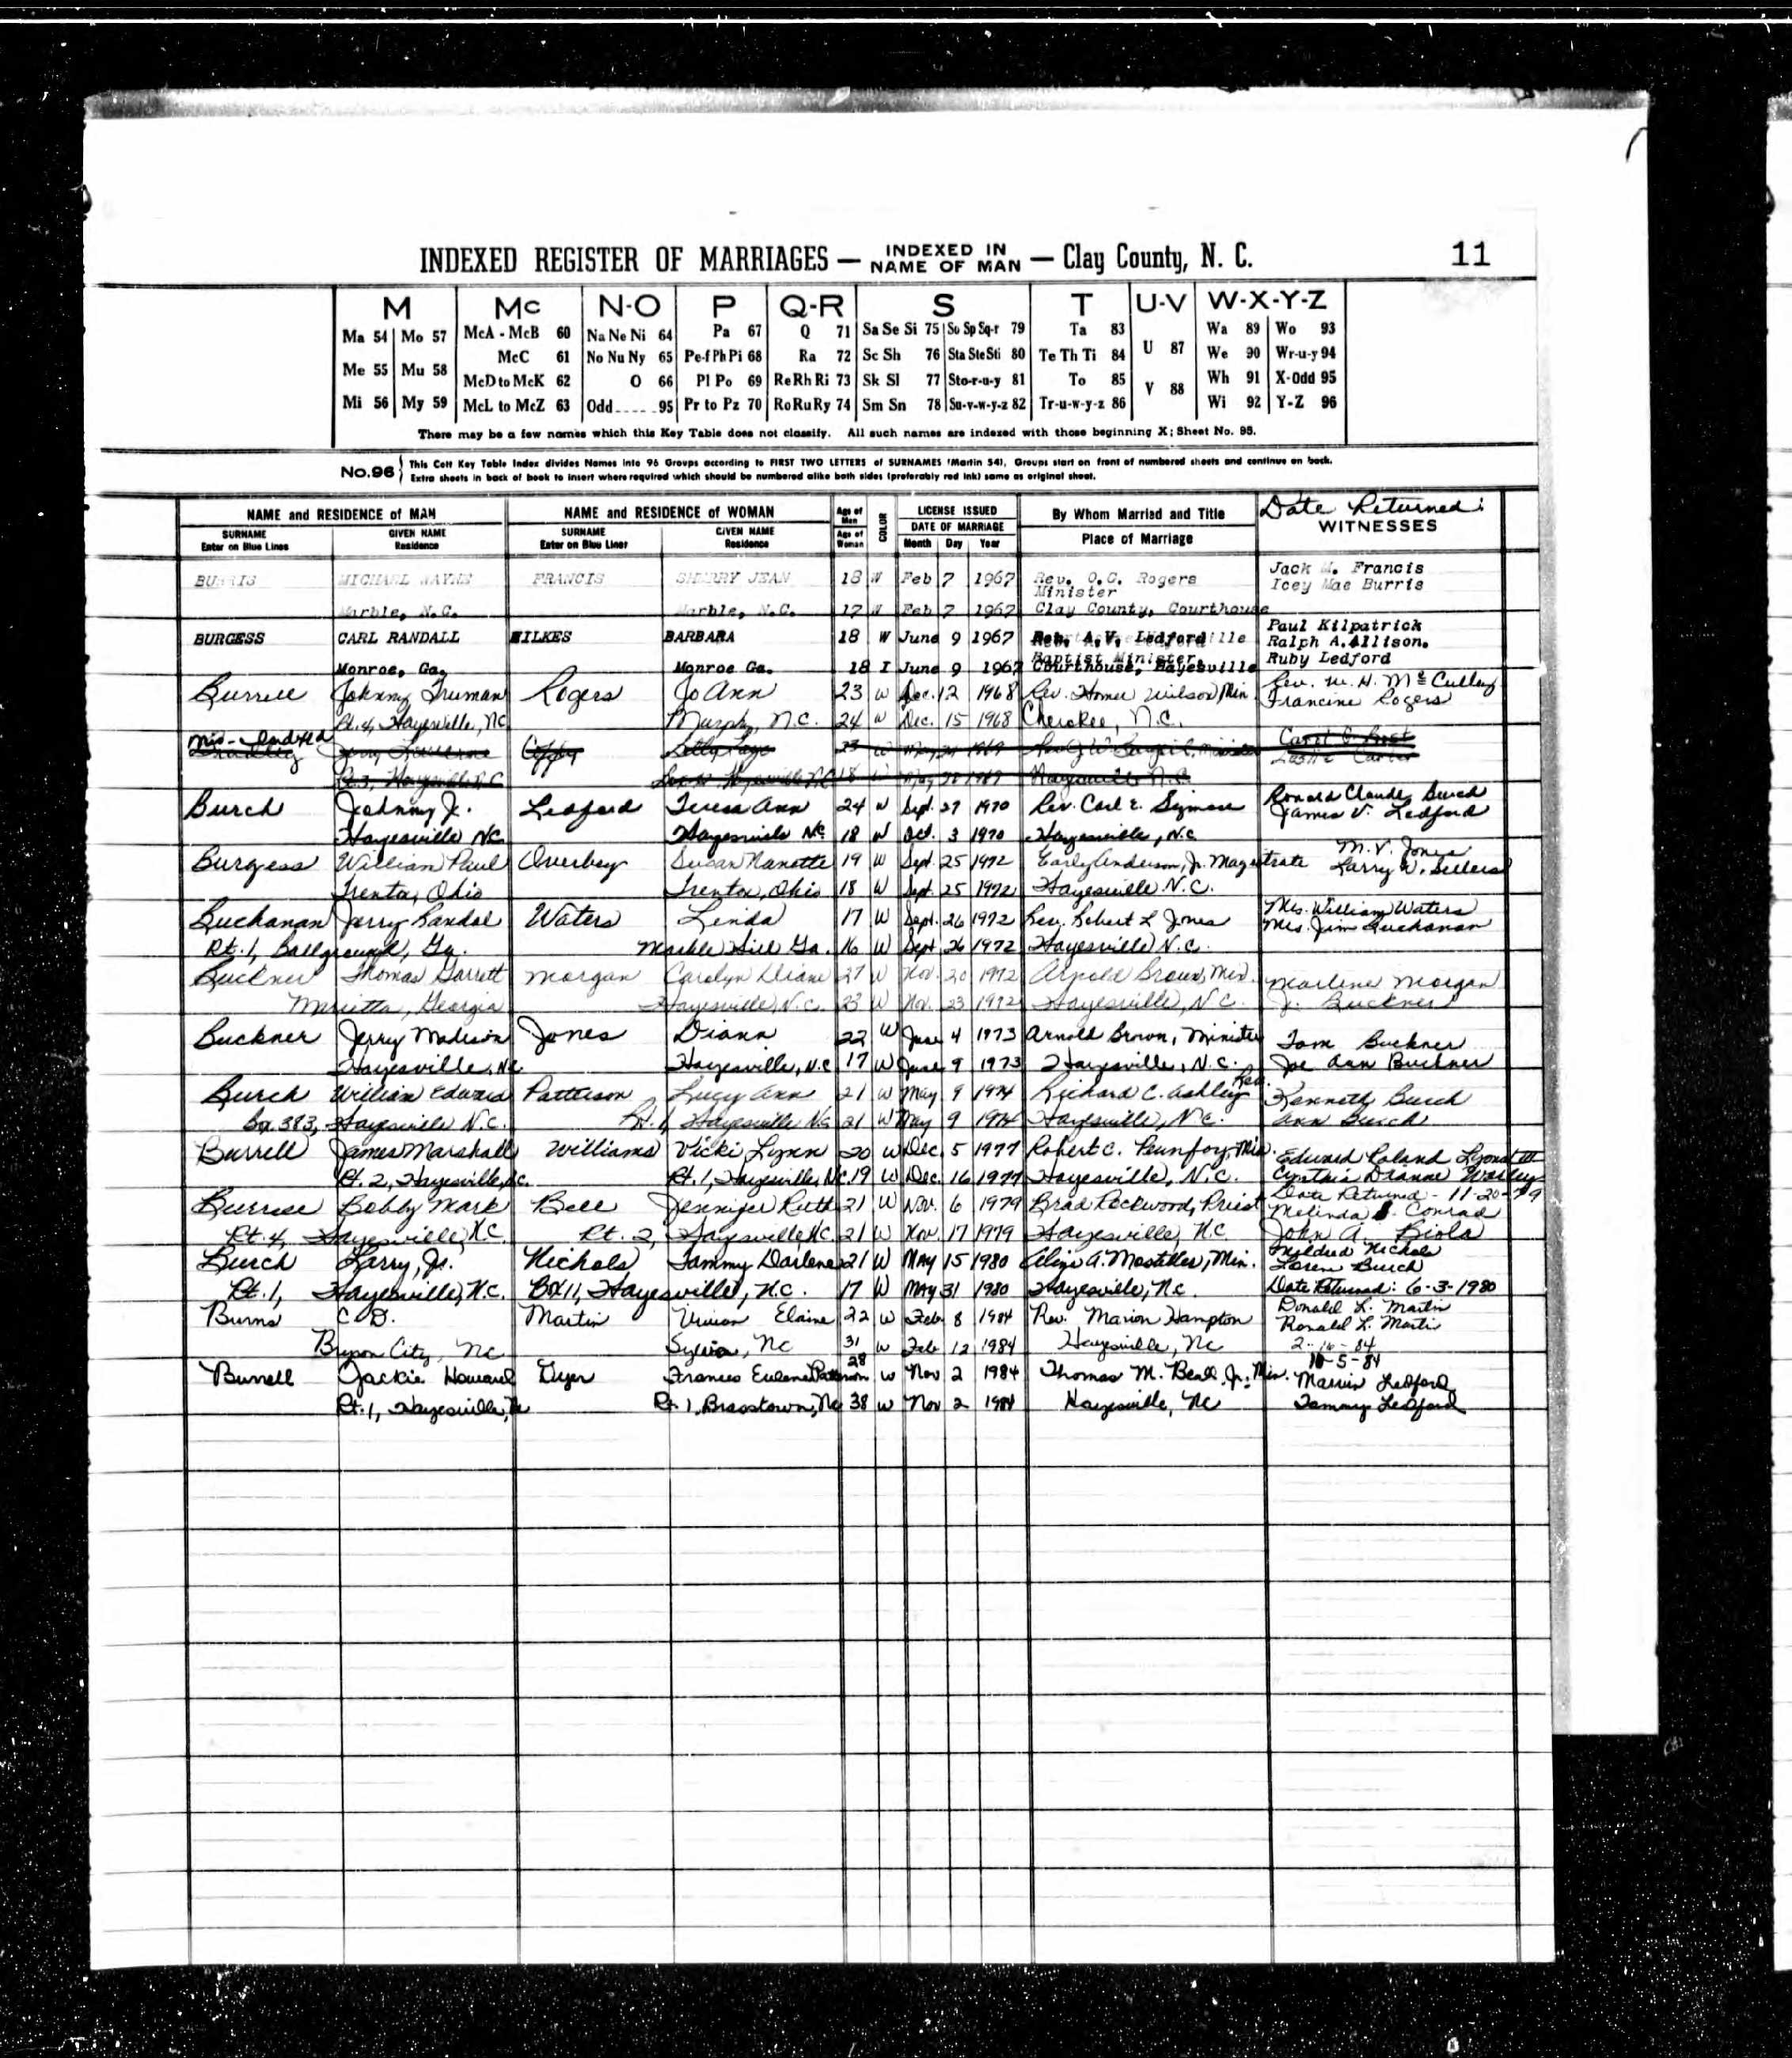 INDEXED REGISTER OF MARRIAGES — INDEXED IN NAME OF MAN — Clay County, N. C. 11
M Mc N-O P Q-R S T U-V W-X-Y-Z
Ma 54 Mo 57 McA - McB 60 Na Ne Ni 64 Pa 67 Q 71 Sa Se Si 75 So Sp Sq-r 79 Ta 83 U 87 Wa 89 Wo 93
Me 55 Mu 58 McC 61 No Nu Ny 65 Pe-f Ph Pi 68 Ra 72 Sc Sh 76 Sta Ste Sti 80 Te Th Ti 84 We 90 Wr-u-y 94
McD to McK 62 O 66 Pl Po 69 Re Rh Ri 73 Sk Sl 77 Sto-r-u-y 81 To 85 V 88 Wh 91 X-Odd 95
Mi 56 My 59 McL to McZ 63 Odd 95 Pr to Pz 70 Ro Ru Ry 74 Sm Sn 78 Su-v-w-y-z 82 Tr-u-w-y-z 86 Wi 92 Y-Z 96
There may be a few names which this Key Table does not classify. All such names are indexed with those beginning X; Sheet No. 95.
No. 96 This Cott Key Table Index divides Names into 96 Groups according to FIRST TWO LETTERS of SURNAMES (Martin 54), Groups start on front of numbered sheets and continue on back.
Extra sheets in back of book to insert where required which should be numbered alike both sides (preferably red ink) same as original sheet.
NAME and RESIDENCE of MAN NAME and RESIDENCE of WOMAN Age of Man COLOR LICENSE ISSUED By Whom Married and Title Date Returned:
SURNAME GIVEN NAME SURNAME GIVEN NAME Age of Woman DATE OF MARRIAGE Place of Marriage WITNESSES
Enter on Blue Lines Residence Enter on Blue Lines Residence Month Day Year
BURRIS MICHAEL WAYNE FRANCIS SHERRY JEAN 18 W Feb 7 1967 Rev. O.C. Rogers Minister Jack M. Francis Icey Mae Burris
Marble, N.C. Marble, N.C. 17 W Feb 7 1967 Clay County, Courthouse
BURGESS CARL RANDALL WILKES BARBARA 18 W June 9 1967 Rev. A.V. Ledford Baptist Minister Paul Kilpatrick Ralph A. Allison.
Monroe, Ga. Monroe Ga. 18 I June 9 1967 Courthouse, Hayesville Ruby Ledford
Burrell Johnny Truman Rogers Jo Ann 23 W Dec. 12 1968 Rev. Homer Wilson, Min Rev. W. H. McCulley Francine Rogers
Rt. 4, Hayesville, NC Murphy, N.C. 24 W Dec. 15 1968 Cherokee, N.C.
Mis-Indexed
Burch Johnny Jr. Ledford Teresa Ann 24 W Sept. 27 1970 Rev. Carl E. Ronald Claude Burch James V. Ledford
Hayesville NC Hayesville NC 18 W Oct. 3 1970 Hayesville, N.C
Burgess William Paul Overbey Susan Nanette 19 W Sept. 25 1972 Early Anderson, Jr. Magistrate M. V. Jones
Trenton, Ohio Trenton, Ohio 18 W Sept. 25 1972 Hayesville N.C. Larry W. Sellers
Buchanan Jerry Randal Waters Linda 17 W Sept. 26 1972 Rev. Robert L Jones Mrs. William Waters Mrs. Jim Buchanan
Rt. 1, Ballground, Ga. Marble Hill Ga. 16 W Sept 26 1972 Hayesville N.C.
Buckner Thomas Garrett Morgan Carolyn Diane 27 W Nov. 20 1972 Arnold Brown, Min. Marlene Morgan
Marietta, Georgia Hayesville, N.C. 23 W Nov. 23 1972 Hayesville, N.C. J. Buckner
Buckner Jerry Madison Jones Diann 22 W June 4 1973 Arnold Brown, Minister Tom Buckner
Hayesville, NC Hayesville, N.C 17 W June 9 1973 Hayesville, N.C. Joe Ann Buckner
Burch William Edward Patterson Lucy Ann 21 W May 9 1974 Richard C. Ashley Rev. Kenneth Burch
Box 383, Hayesville N.C. Rt. 1 Hayesville NC 21 W May 9 1974 Hayesville, N.C. Ann Burch
Burrell James Marshall Williams Vicki Lynn 20 W Dec 5 1977 Robert C. Min. Edward Roland Lyons III
Rt. 2, Hayesville, NC. Rt. 1, Hayesville, NC 19 W Dec. 16 1977 Hayesville, N.C. Cynthia Dianne
Burrell Bobby Mark Bell Jennifer Ruth 21 W Nov. 6 1979 Brad Rockwood, Priest Date Returned - 11-20-79 Melinda Conrad
Rt. 4, Hayesville, N.C. Rt. 2, Hayesville N.C. 21 W Nov. 17 1979 Hayesville, N.C John A. Biola
Burch Larry, Jr. Nichols Tammy Darlene 21 W May 15 1980 A. Min. Mildred Nichols Loren Burch
Rt. 1, Hayesville, N.C. Box 11, Hayesville, N.C. 17 W May 31 1980 Hayesville, N.C. Date Returned: 6-3-1980
Burns C D. Martin Vivian Elaine 22 W Feb 8 1984 Rev. Marion Hampton Donald L. Martin Ronald L. Martin
Bryson City, NC Sylva, NC 31 W Feb 12 1984 Hayesville, NC 2-16-84
Burrell Jackie Howard Dyer Frances Eulene Patterson 28 W Nov 2 1984 Thomas M. Beal, Jr. Min. 11-5-84 Marvin Ledford
Rt. 1, Hayesville, NC Rt. 1, Brasstown, NC 38 W Nov 2 1984 Hayesville, NC Tammy Ledford